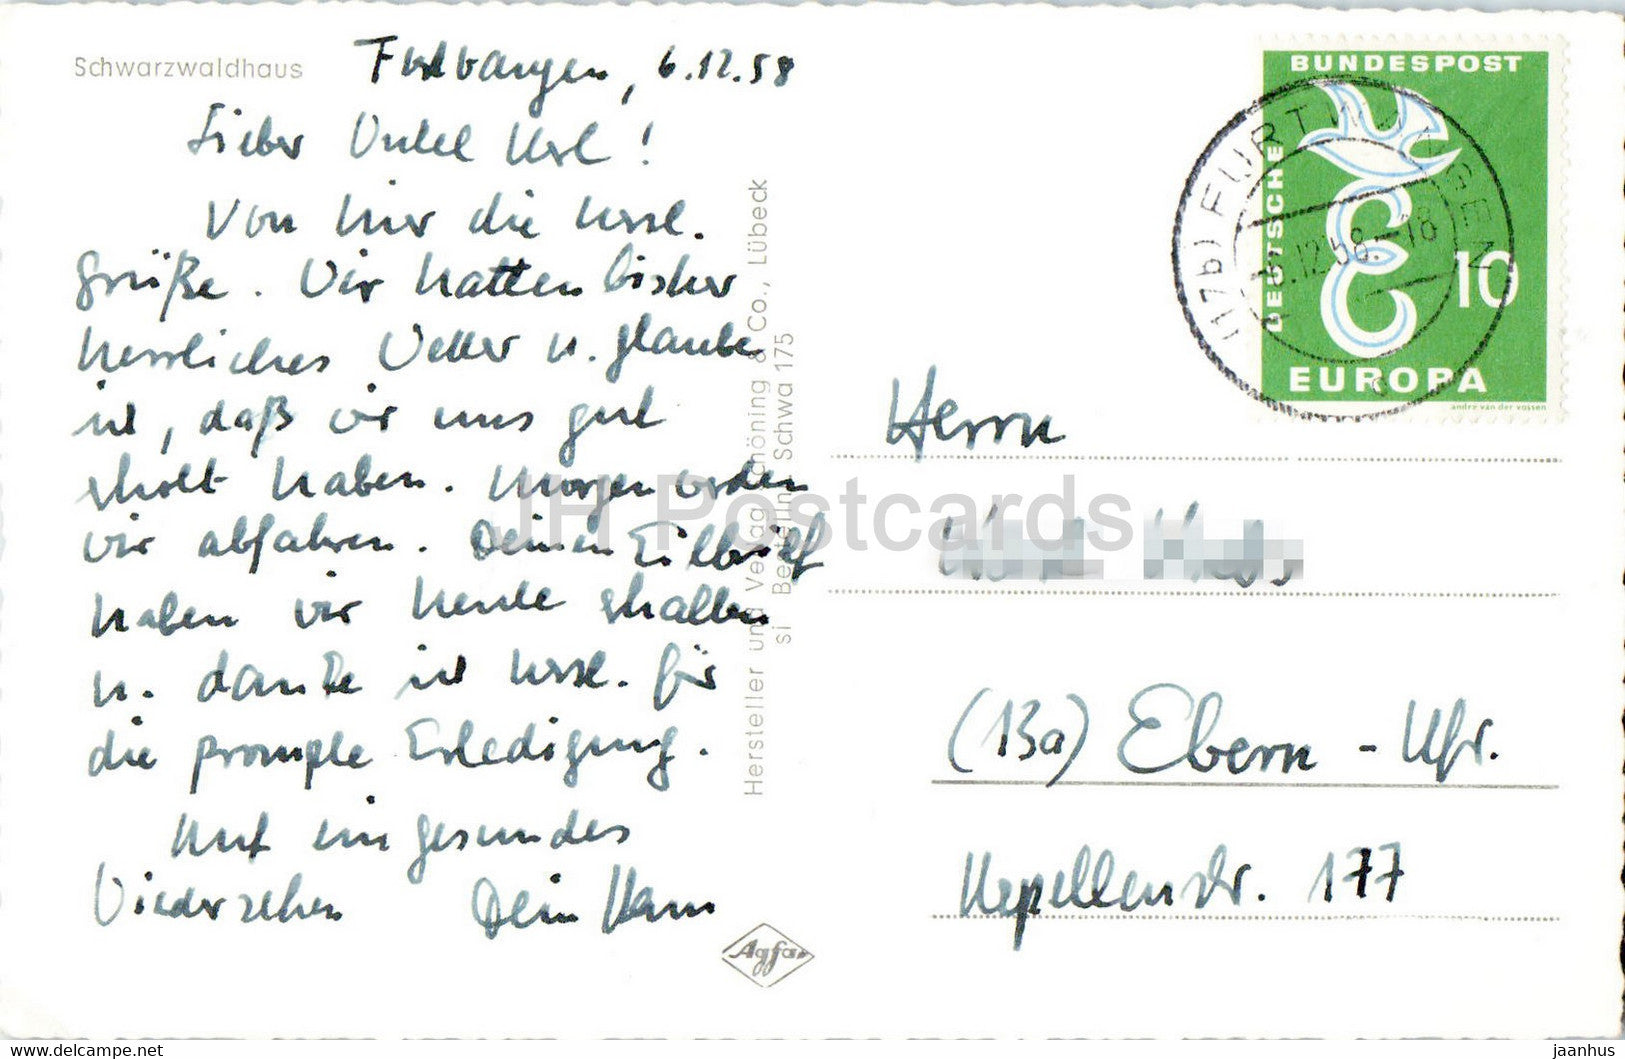 Schwarzwaldhaus
Furtwangen, 6.12.58
Lieber Onkel Karl!
Von hier die herzl.
Grüße. Wir hatten bisher
herrliches Wetter u. glaube
ich, daß wir uns gut
erholt haben. Morgen werden
wir abfahren. Deinen Eilbrief
haben wir heute erhalten
u. danke ich herzl. für
die prompte Erledigung.
Auf ein gesundes
Wiedersehen Dein Hans
Hersteller und Verlag Schöning & Co., Lübeck
si Bestell-Nr. Schwa 175
Agfa
DEUTSCHE BUNDESPOST
10
EUROPA
andre van der vossen
(17b) FURTWANGEN
6.12.58.-18
c
Herrn
(13a) Ebern - Ufr.
Kapellenstr. 177
JH Postcards
www.delcampe.net
jaanhus